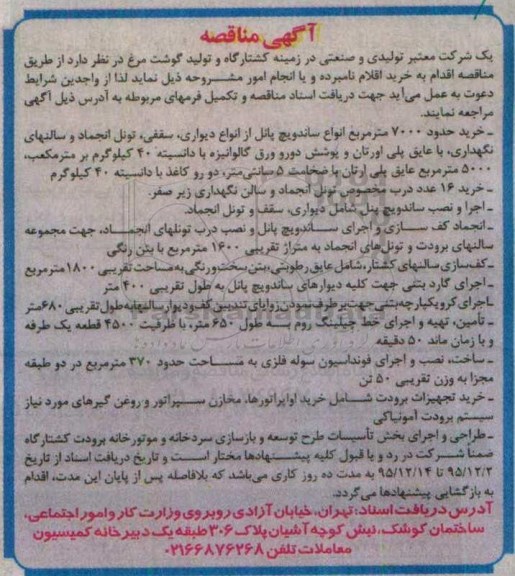 آگهی مناقصه
یک شرکت معتبر تولیدی و صنعتی در زمینه کشتارگاه و تولید گوشت مرغ در نظر دارد از طریق
مناقصه اقدام به خرید اقلام نامبرده و یا انجام امور مشروحه ذیل نماید لذا از واجدین شرایط
دعوت به عمل می‌آید جهت دریافت اسناد مناقصه و تکمیل فرمهای مربوطه به آدرس ذیل آگهی
مراجعه نمایند.
ـ خرید حدود ۷۰۰۰ مترمربع انواع ساندویچ پانل از انواع دیواری، سقفی، تونل انجماد و سالنهای
نگهداری، با عایق پلی اورتان و پوشش دورو ورق گالوانیزه با دانسیته ۴۰ کیلوگرم بر مترمکعب،
۵۰۰۰ مترمربع عایق پلی ارتان با ضخامت ۵ سانتی‌متر، دو رو کاغذ با دانسیته ۴۰ کیلوگرم
ـ خرید ۱۶ عدد درب مخصوص تونل انجماد و سالن نگهداری زیر صفر.
ـ اجرا و نصب ساندویچ پنل شامل دیواری، سقف و تونل انجماد.
ـ انجماد کف سازی و اجرای ساندویچ پانل و نصب درب تونلهای انجماد، جهت مجموعه
سالنهای برودت و تونل‌های انجماد به متراژ تقریبی ۱۶۰۰ مترمربع با بتن رنگی
ـ کف‌سازی سالنهای کشتار، شامل عایق رطوبتی، بتن سخت و رنگی به مساحت تقریبی ۱۸۰۰ مترمربع
ـ اجرای گارد بتنی جهت کلیه دیوارهای ساندویچ پانل به طول تقریبی ۴۰۰ متر
ـ اجرای کرو یکپارچه بتنی جهت برطرف نمودن زوایای تند بین کف و دیوار سالنها به طول تقریبی ۶۸۰ متر
ـ تأمین، تهیه و اجرای خط چیلینگ روم به طول ۶۵۰ متر، با ظرفیت ۴۵۰۰ قطعه یک طرفه
و با زمان ماند ۵۰ دقیقه
ـ ساخت، نصب و اجرای فونداسیون سوله فلزی به مساحت حدود ۳۷۰ مترمربع در دو طبقه
مجزا به وزن تقریبی ۵۰ تن
ـ خرید تجهیزات برودت شامل خرید اواپراتورها، مخازن سپراتور و روغن گیرهای مورد نیاز
سیستم برودت آمونیاکی
ـ طراحی و اجرای بخش تأسیسات طرح توسعه و بازسازی سردخانه و موتورخانه برودت کشتارگاه
ضمناً شرکت در رد و یا قبول کلیه پیشنهادها مختار است و تاریخ دریافت اسناد از تاریخ
۹۵/۱۲/۲ تا ۹۵/۱۲/۱۴ به مدت ده روز کاری می‌باشد که بلافاصله پس از پایان این مدت، اقدام
به بازگشایی پیشنهادها می‌گردد.
آدرس دریافت اسناد: تهران، خیابان آزادی روبروی وزارت کار و امور اجتماعی،
ساختمان کوشک، نبش کوچه آشیان پلاک ۳۰۶ طبقه یک دبیرخانه کمیسیون
معاملات تلفن ۰۲۱۶۶۸۷۶۲۶۸